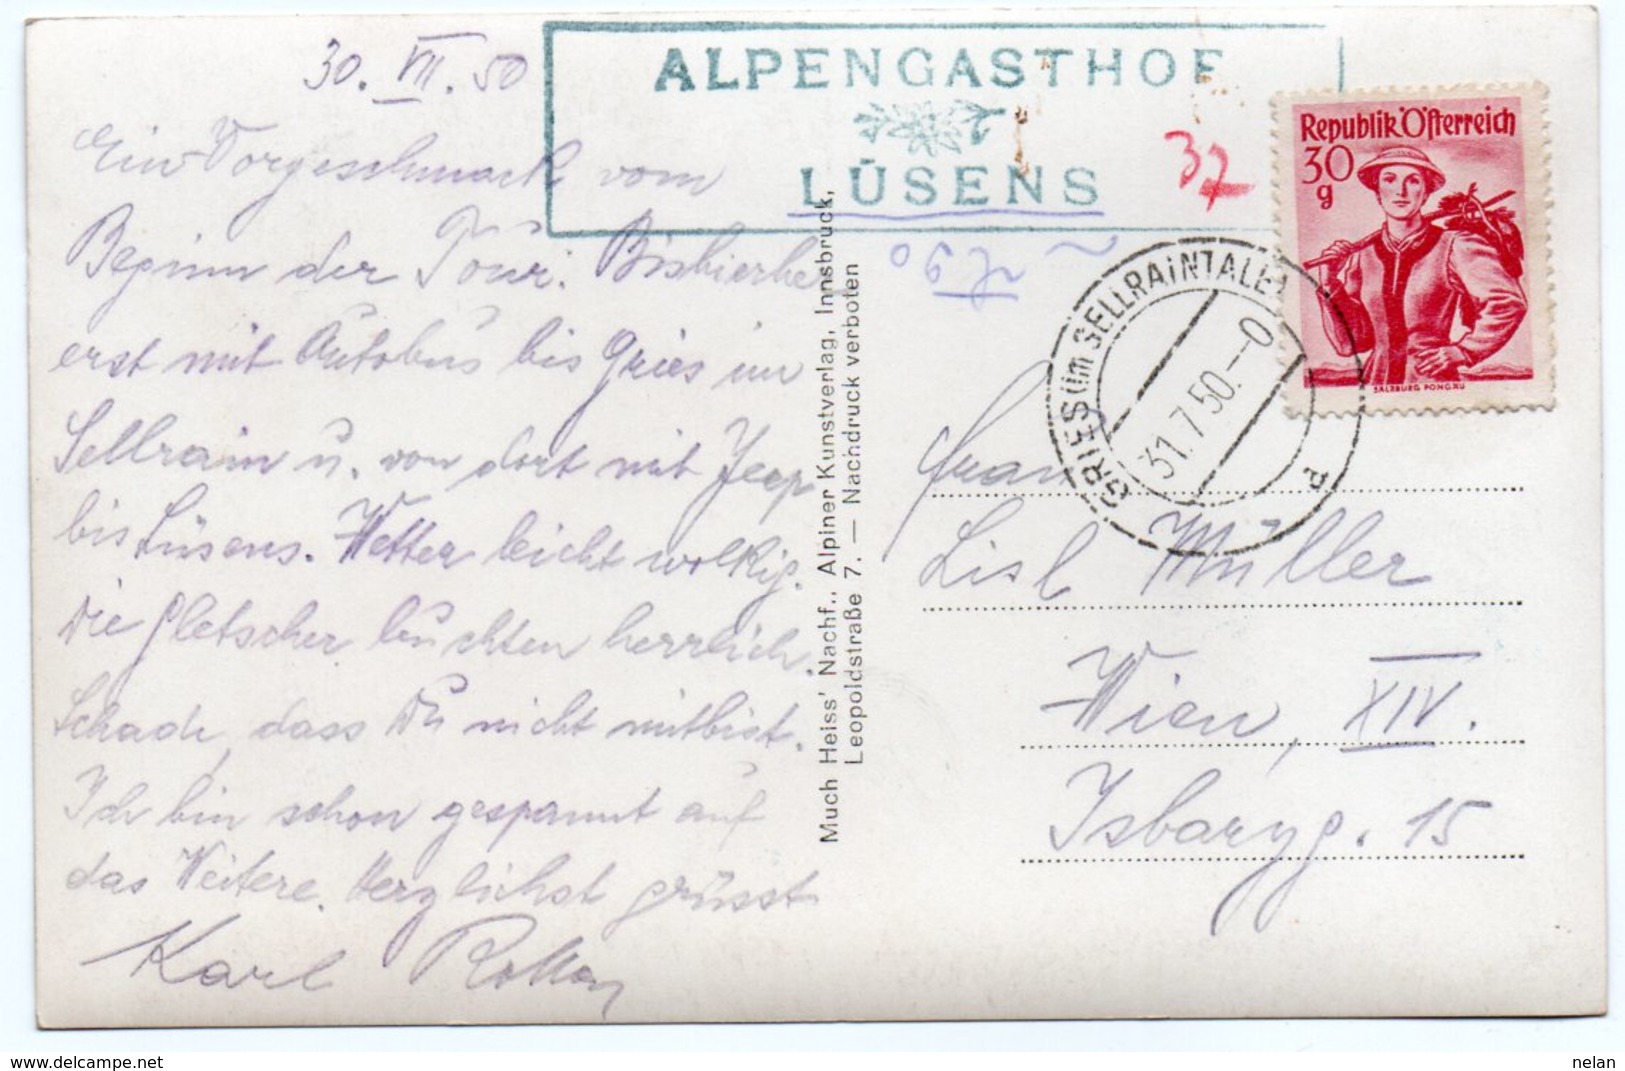 30. VII. 50
Ein Vorgeschmack vom
Beginn der Tour. Bisher
erst mit Autobus bis Gries im
Sellrain u. von dort mit Jeep
bis Lüsens. Wetter leicht wolkig.
Die Gletscher leuchten herrlich.
Schade, dass Du nicht mitbist.
Ich bin schon gespannt auf
das Weitere. Herzlichst grüsst
Karl
ALPENGASTHOF
LÜSENS
37
Much Heiss' Nachf., Alpiner Kunstverlag, Innsbruck,
Leopoldstraße 7. — Nachdruck verboten
Republik Österreich
30
g
SALZBURG PONGAU
GRIES im SELLRAINTALE
31.7.50.--0
Frau
Lisl Müller
Wien, XIV.
Isbaryg. 15
www.delcampe.net
nelan